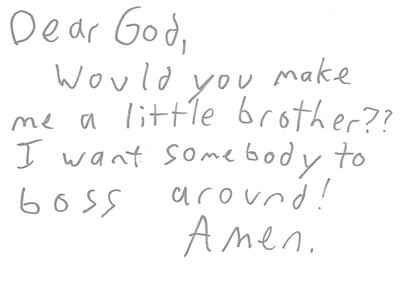 Dear God,
Would you make
me a little brother??
I want somebody to
boss around!
Amen.